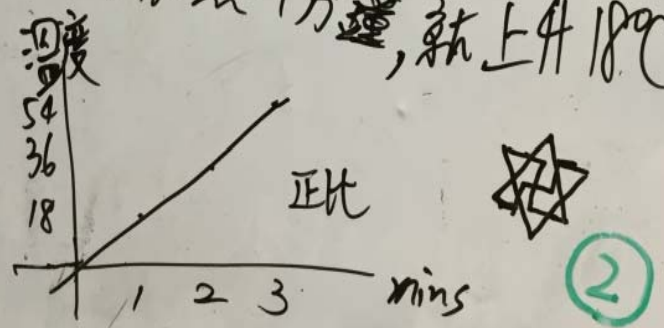 分鐘,就上升 18℃
温度
54
36
18
正比
1 2 3 mins
2